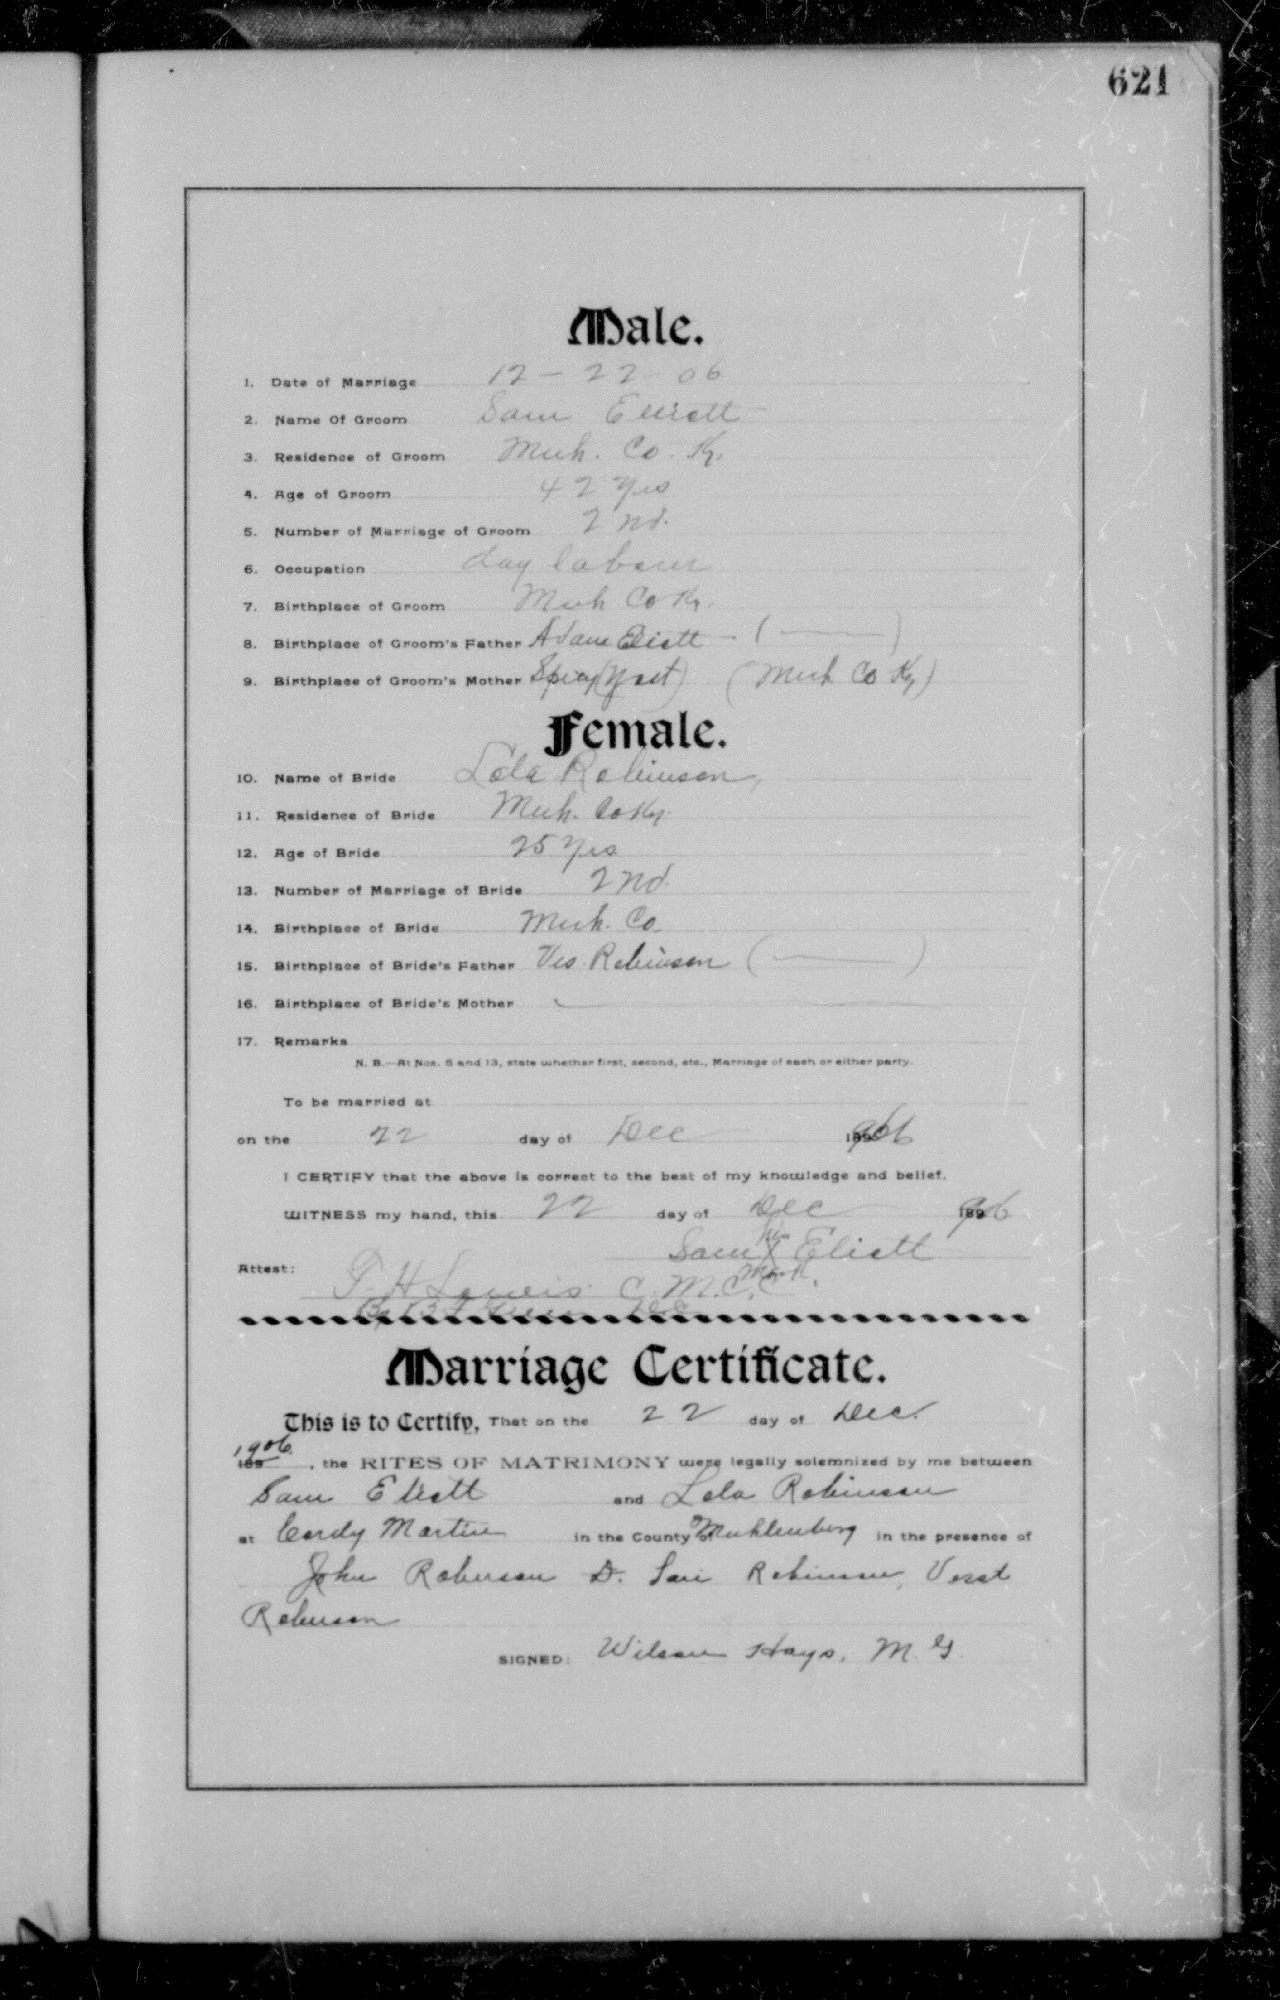 621
Male.
1. Date of Marriage 12 - 22 - 06
2. Name Of Groom Sam Elliott
3. Residence of Groom Muh. Co. Ky.
4. Age of Groom 42 yrs
5. Number of Marriage of Groom 2nd.
6. Occupation day laborer
7. Birthplace of Groom Muh Co Ky.
8. Birthplace of Groom's Father Adam Eliott - ( — )
9. Birthplace of Groom's Mother (Yost) (Muh Co Ky)
Female.
10. Name of Bride Lola Robinson,
11. Residence of Bride Muh. Co Ky
12. Age of Bride 25 yrs
13. Number of Marriage of Bride 2nd.
14. Birthplace of Bride Muh. Co.
15. Birthplace of Bride's Father Ves. Robinson ( — )
16. Birthplace of Bride's Mother
17. Remarks
N. B.—At Nos. 5 and 13, state whether first, second, etc., Marriage of each or either party.
To be married at
on the 22 day of Dec 1906
I CERTIFY that the above is correct to the best of my knowledge and belief.
WITNESS my hand, this 22 day of Dec 1906
his
Sam X Eliott
mark.
Attest: T. H. Lewis C. M. C. C.
By D.C.
Marriage Certificate.
This is to Certify, That on the 22 day of Dec.
1906
189 , the RITES OF MATRIMONY were legally solemnized by me between
Sam Eliott and Lola Robinson
at Cordy Martin in the County of Muhlenberg in the presence of
John Roberson D. Robinson, Verst
Roberson
SIGNED: Wilson Hays, M. G.